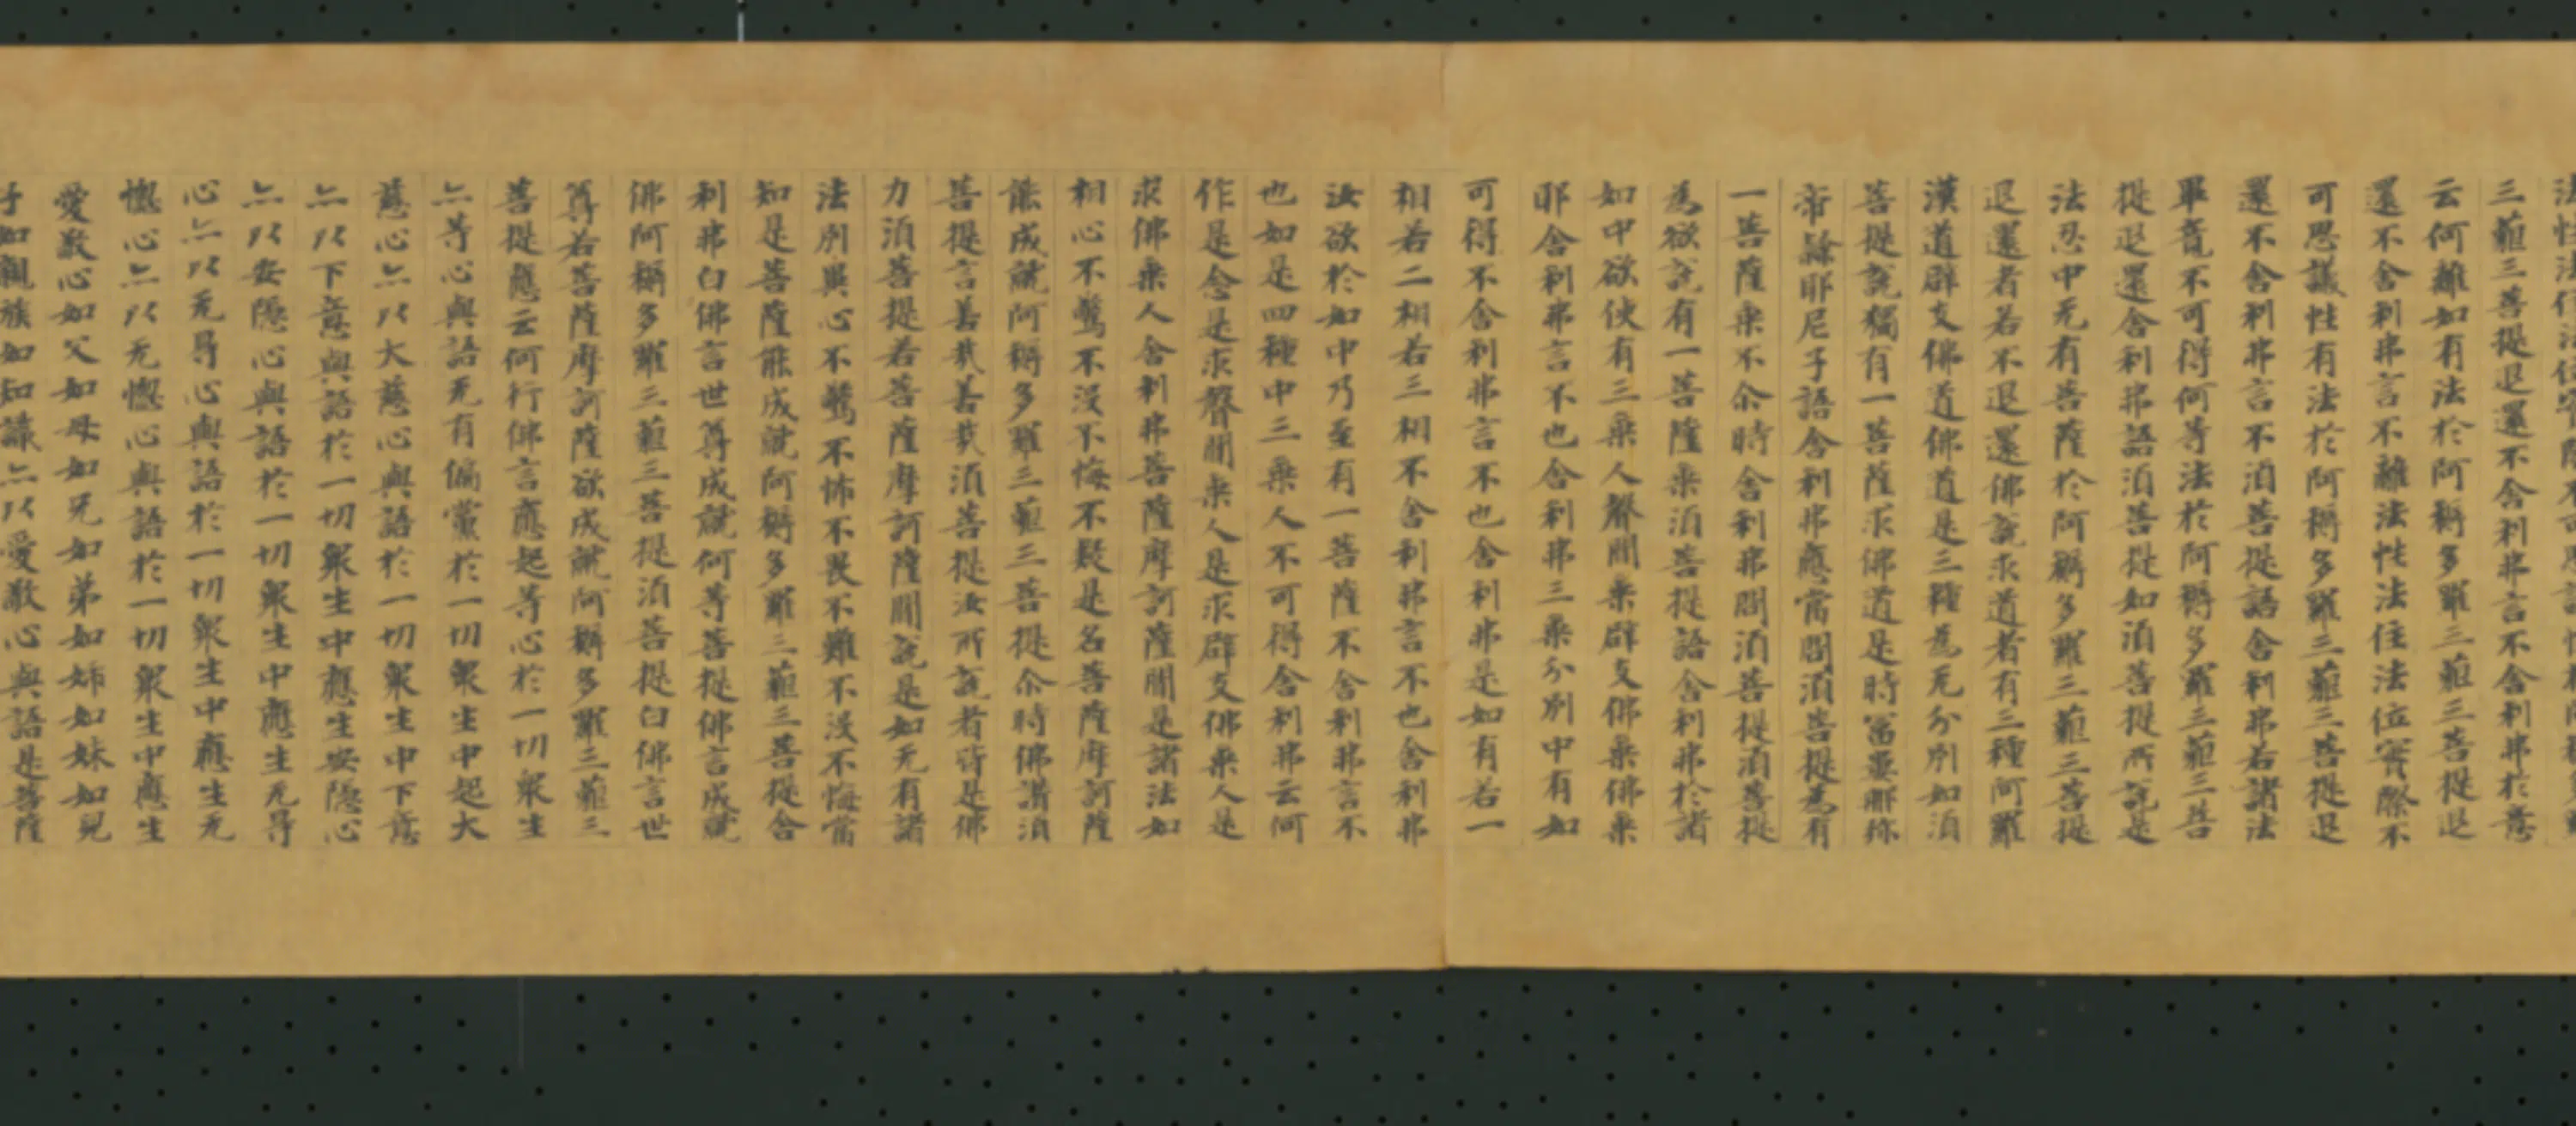 三藐三菩提退還不舍利弗言不舍利弗於意
云何離如有法於阿耨多羅三藐三菩提退
還不舍利弗言不離法性法住法位實際不
可思議性有法於阿耨多羅三藐三菩提退
還不舍利弗言不須菩提語舍利弗若諸法
畢竟不可得何等法於阿耨多羅三藐三菩
提退還舍利弗語須菩提如須菩提所說是
法忍中无有菩薩於阿耨多羅三藐三菩提
退還者若不退還佛說求道者有三種阿羅
漢道辟支佛道佛道是三種為无分別如須
菩提說獨有一菩薩求佛道是時富婁那祢
帝隸耶尼子語舍利弗應當問須菩提為有
一菩薩乘不尒時舍利弗問須菩提須菩提
為欲說有一菩薩乘須菩提語舍利弗於諸
如中欲使有三乘人聲聞乘辟支佛乘佛乘
耶舍利弗言不也舍利弗三乘分別中有如
可得不舍利弗言不也舍利弗是如有若一
相若二相若三相不舍利弗言不也舍利弗
汝欲於如中乃至有一菩薩不舍利弗言不
也如是四種中三乘人不可得舍利弗云何
作是念是求聲聞乘人是求辟支佛乘人是
求佛乘人舍利弗菩薩摩訶薩聞是諸法如
相心不驚不沒不悔不疑是名菩薩摩訶薩
能成就阿耨多羅三藐三菩提尒時佛讚須
菩提言善哉善哉須菩提汝所說者皆是佛
力須菩提若菩薩摩訶薩聞說是如无有諸
法別異心不驚不怖不畏不難不沒不悔當
知是菩薩能成就阿耨多羅三藐三菩提舍
利弗白佛言世尊成就何等菩提佛言成就
佛阿耨多羅三藐三菩提須菩提白佛言世
尊若菩薩摩訶薩欲成就阿耨多羅三藐三
菩提應云何行佛言應起等心於一切衆生
亦等心與語无有偏黨於一切衆生中起大
慈心亦以大慈心與語於一切衆生中下意
亦以下意與語於一切衆生中應生安隱心
亦以安隱心與語於一切衆生中應生无㝵
心亦以无㝵心與語於一切衆生中應生无
惱心亦以无惱心與語於一切衆生中應生
愛敬心如父如母如兄如弟如姊如妹如兒
子如親族如知識亦以愛敬心與語是菩薩